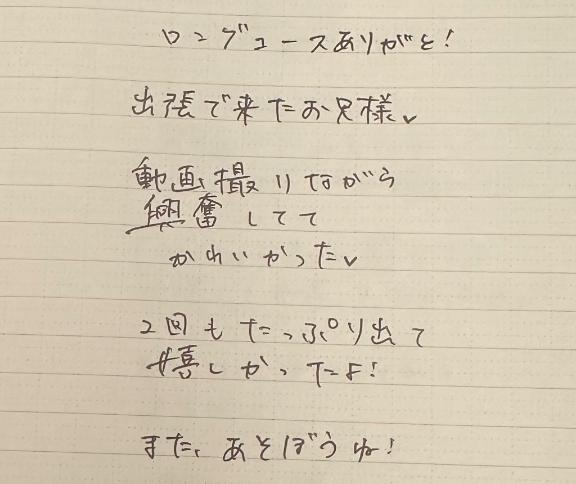 ロングユースありがと!
出張で来たお兄様✓
動画撮りながら
興奮してて
かわいかった✓
2回もたっぷり出て
嬉しかったよ!
また、あそぼうね!